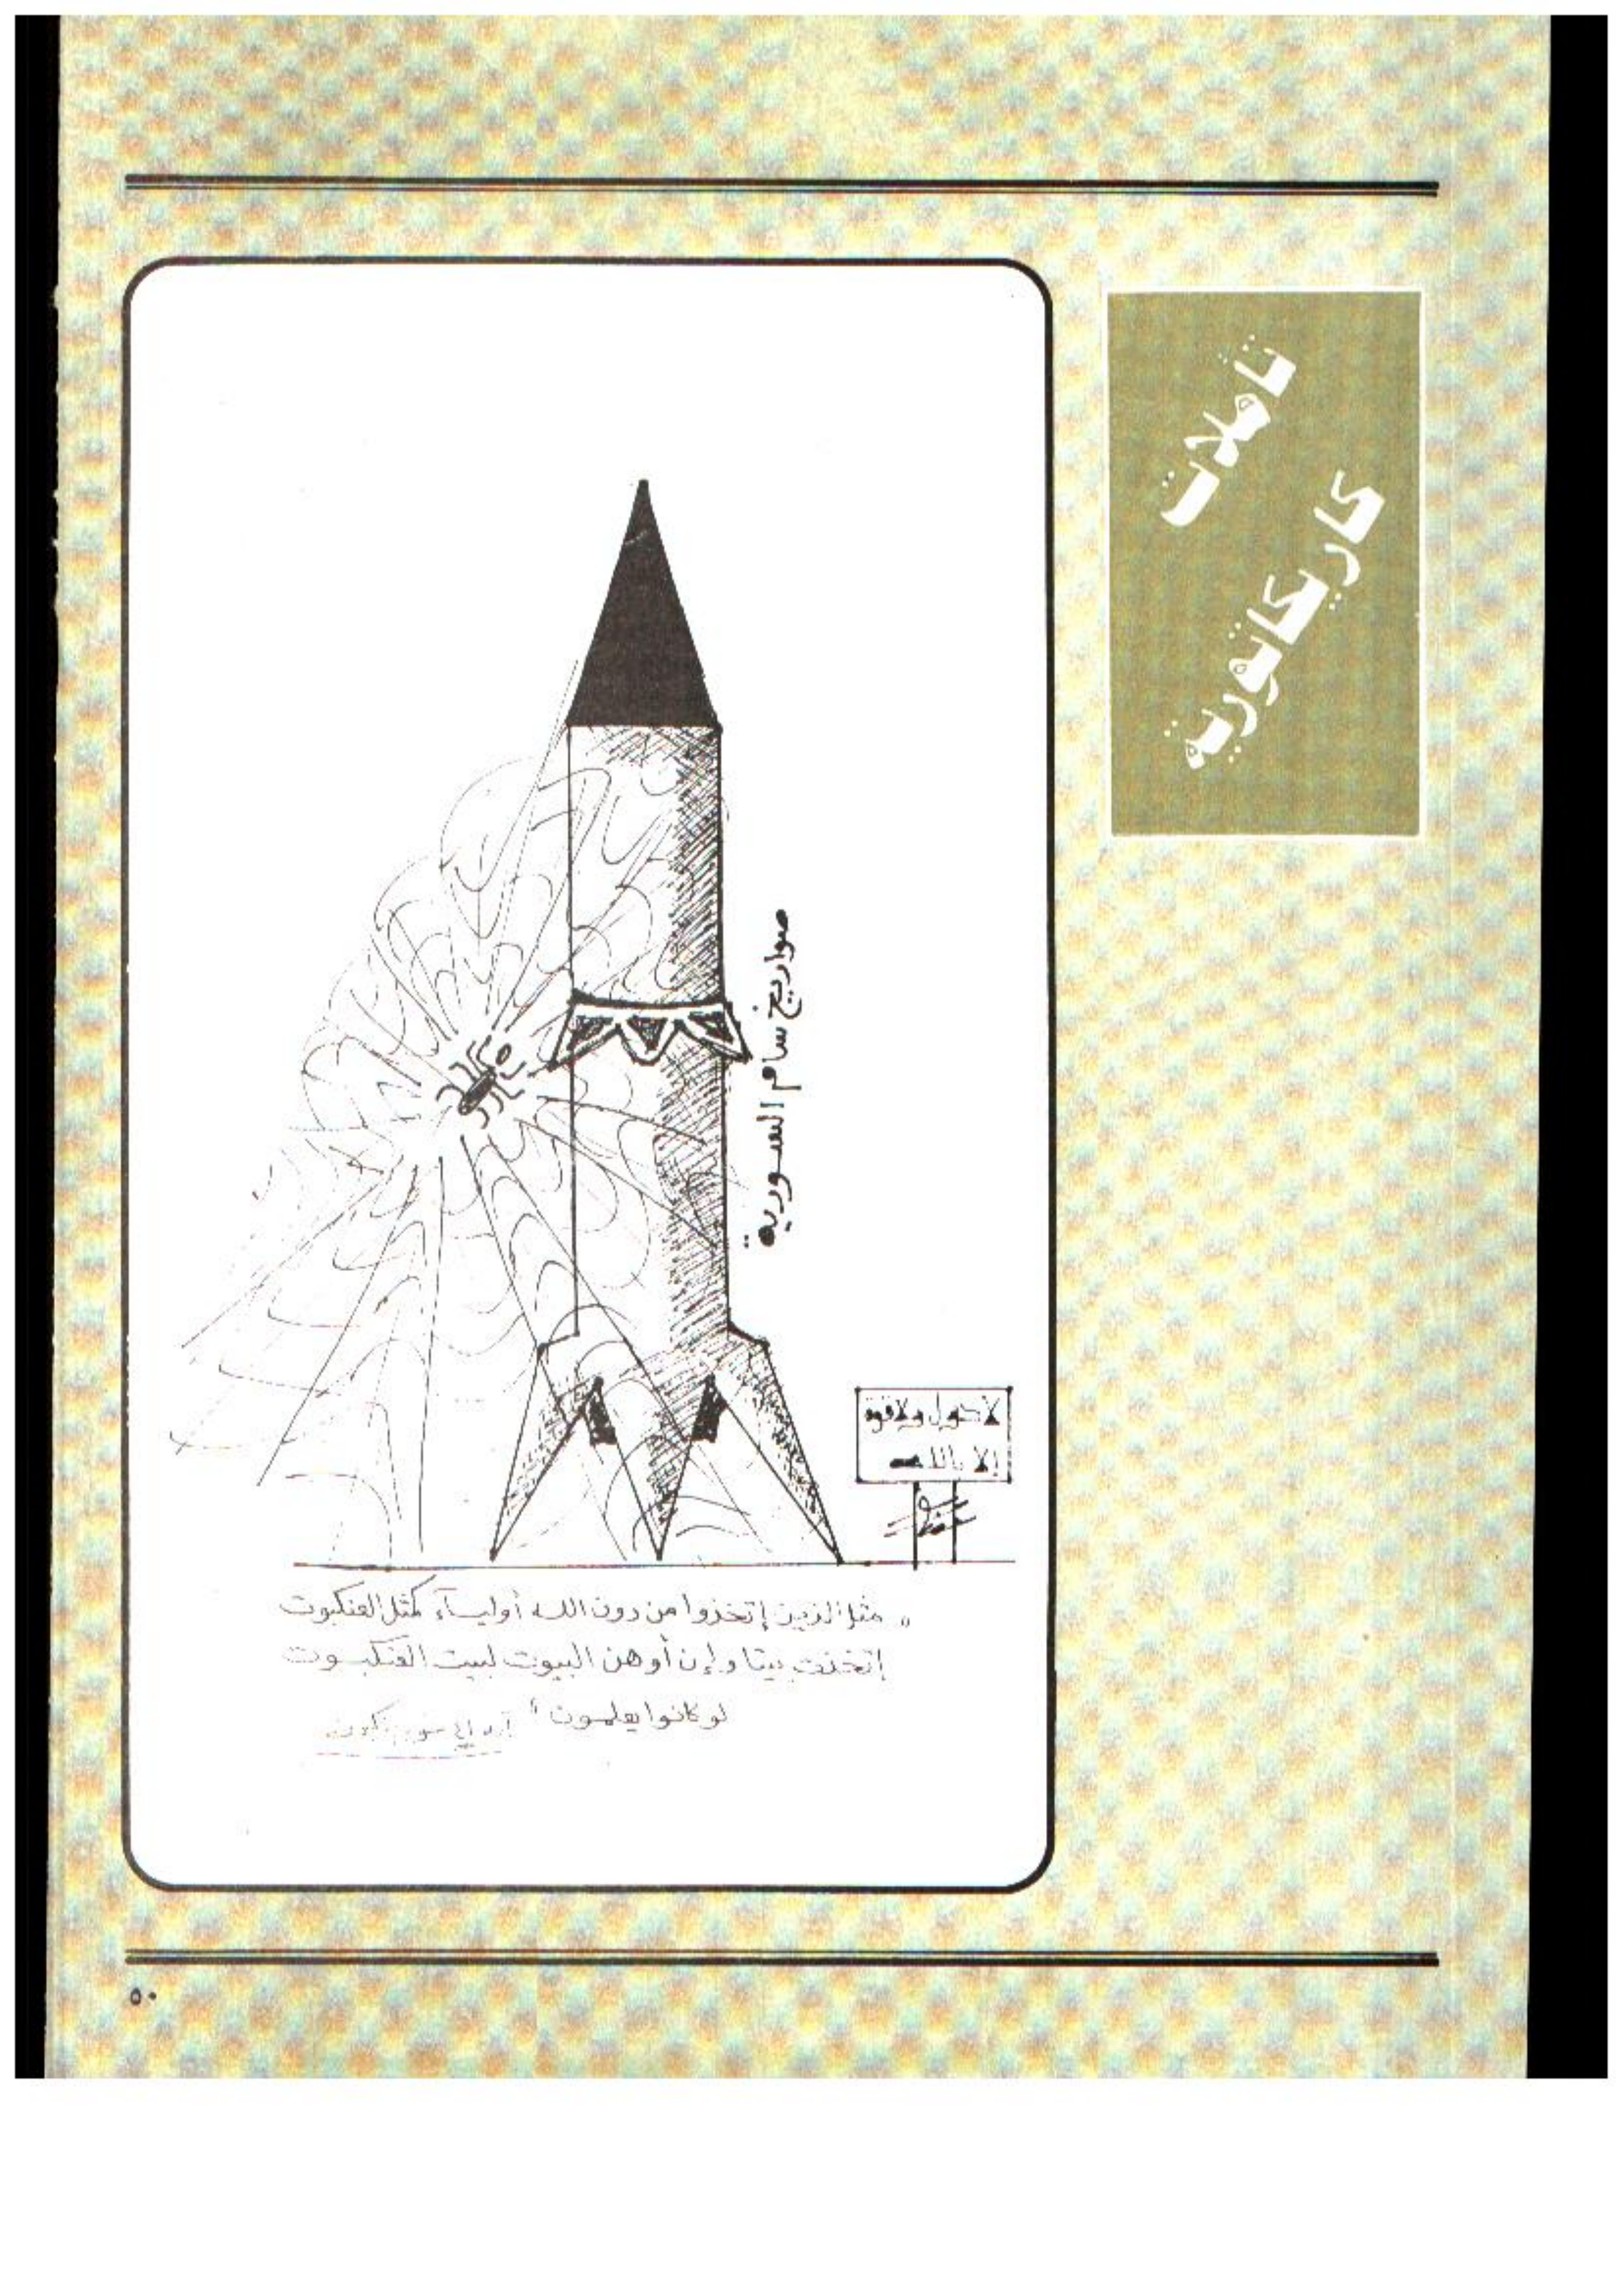 تأملات
كاريكاتورية
صواريخ سام السورية
لا حول ولا قوة
إلا بالله
" مثل الذين إتخذوا من دون الله أوليآء كمثل العنكبوت
إتخذت بيتا وإن أوهن البيوت لبيت العنكبوت
لو كانوا يعلمون "
٥٠